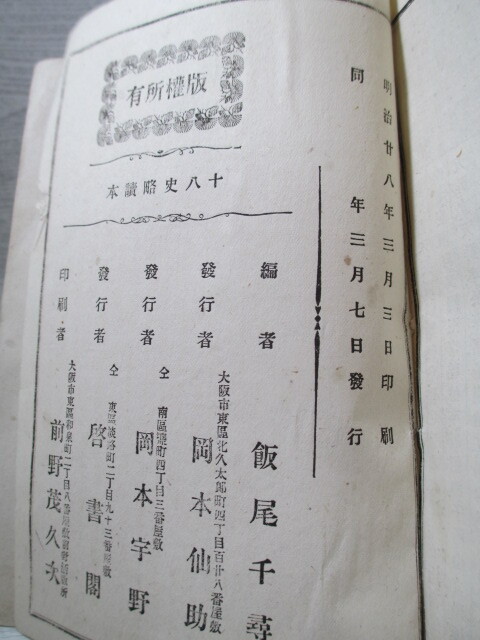 明治廿八年三月三日印刷
同年三月七日發行
版權所有
十八史略讀本
編者
飯尾千尋
發行者
大阪市東區北久太郎町四丁目百廿八番屋敷
岡本仙助
發行者
仝 南區鹽町四丁目三番屋敷
岡本宇野
發行者
仝 東區淡路町二丁目九十三番屋敷
啓書閣
印刷者
大阪市東區和泉町二丁目八番屋敷
前野茂久次